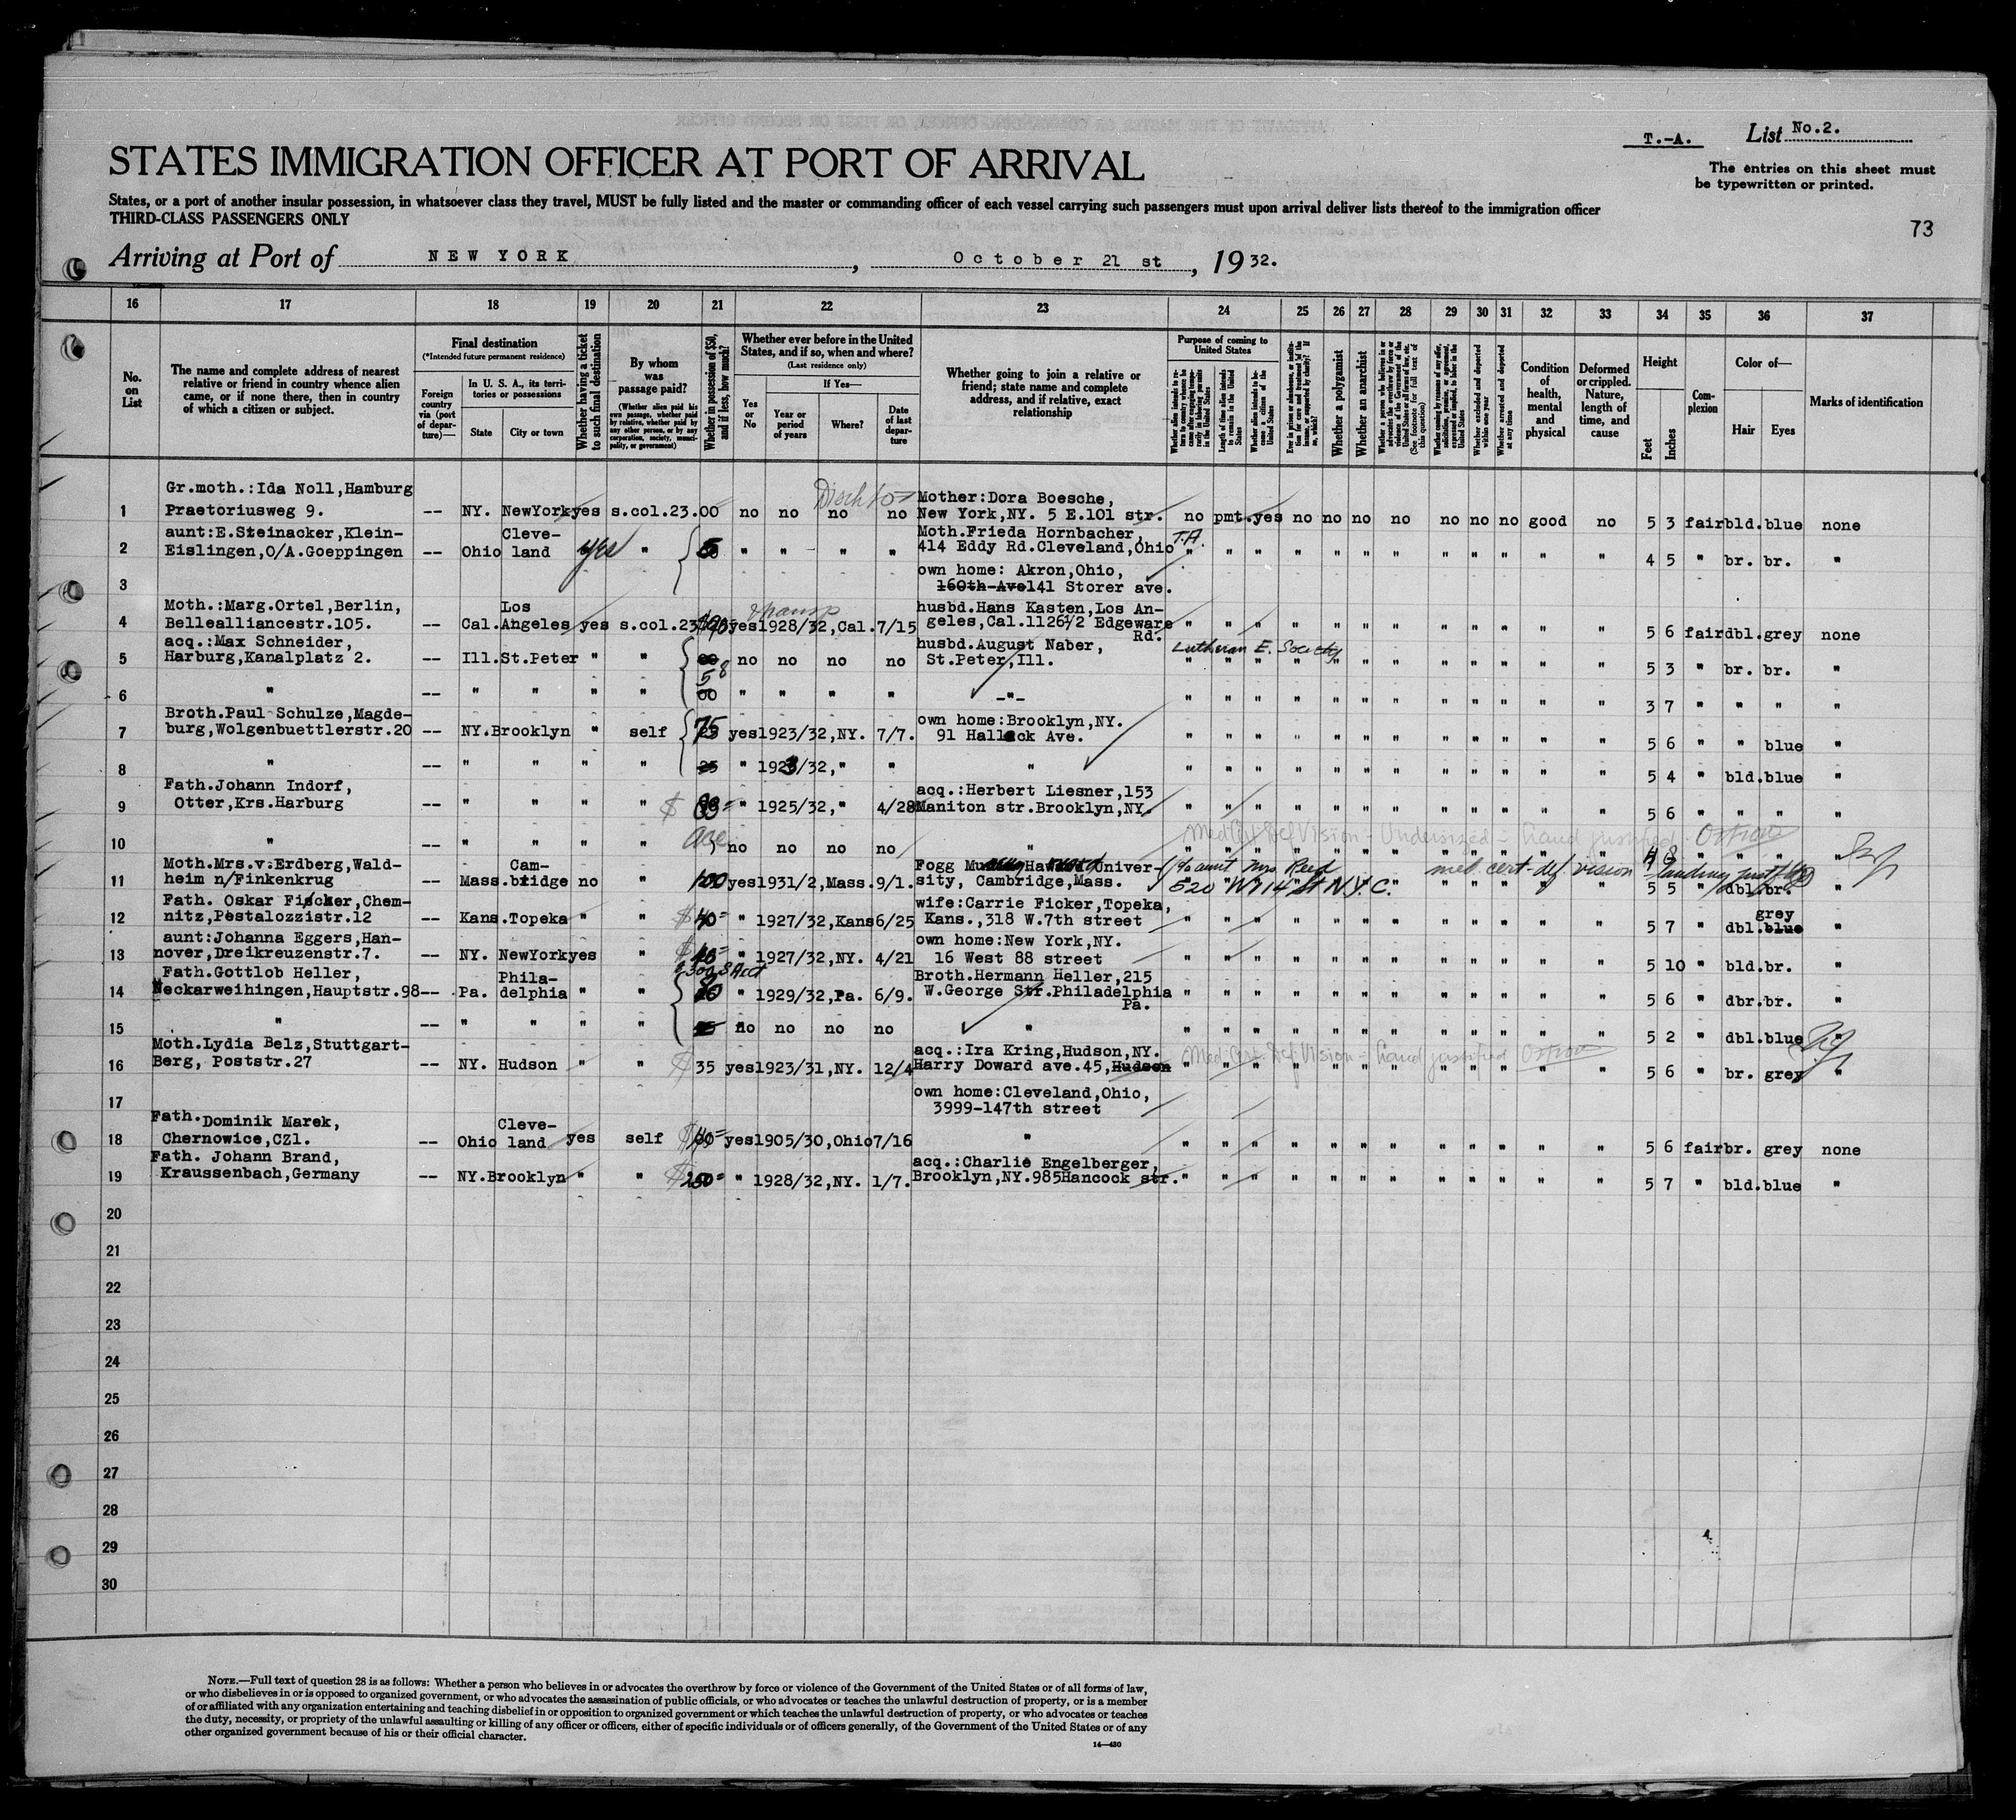 T.-A. List No.2.
STATES IMMIGRATION OFFICER AT PORT OF ARRIVAL
The entries on this sheet must
be typewritten or printed.
States, or a port of another insular possession, in whatsoever class they travel, MUST be fully listed and the master or commanding officer of each vessel carrying such passengers must upon arrival deliver lists thereof to the immigration officer
THIRD-CLASS PASSENGERS ONLY
73
Arriving at Port of NEW YORK, October 21 st, 1932.
16 17 18 19 20 21 22 23 24 25 26 27 28 29 30 31 32 33 34 35 36 37
No. on List
The name and complete address of nearest relative or friend in country whence alien came, or if none there, then in country of which a citizen or subject.
Final destination
(*Intended future permanent residence)
Foreign country via (port of departure)—
In U. S. A., its territories or possessions
State
City or town
Whether having a ticket to such final destination
By whom was passage paid?
(Whether alien paid his own passage, whether paid by relative, whether paid by any other person, or by any corporation, society, municipality, or government)
Whether in possession of $50, and if less, how much?
Whether ever before in the United States, and if so, when and where?
(Last residence only)
Yes or No
If Yes—
Year or period of years
Where?
Date of last departure
Whether going to join a relative or friend; state name and complete address, and if relative, exact relationship
Purpose of coming to United States
Length of time alien intends to remain in the United States
Whether alien intends to become a citizen of the United States
Whether a polygamist
Whether an anarchist
Whether excluded and deported within one year
Whether arrested and deported at any time
Condition of health, mental and physical
Deformed or crippled. Nature, length of time, and cause
Height
Feet
Inches
Complexion
Color of—
Hair
Eyes
Marks of identification
1 Gr.moth.:Ida Noll,Hamburg Praetoriusweg 9. -- NY. NewYork yes s.col.23.00 no no no no Mother:Dora Boesche, New York,NY. 5 E.101 str. no pmt. yes no no no no no no no good no 5 3 fair bld. blue none
2 aunt:E.Steinacker,Klein-Eislingen,O/A.Goeppingen -- Ohio Cleve-land yes " " " " " Moth.Frieda Hornbacher, 414 Eddy Rd.Cleveland,Ohio T.A. " " " " " " " " " " " " 4 5 " br. br. "
3 own home: Akron,Ohio, 160th-Ave 141 Storer ave.
4 Moth.:Marg.Ortel,Berlin, Bellealliancestr.105. -- Cal. Los Angeles yes s.col.23 yes 1928/32,Cal. 7/15 husbd.Hans Kasten,Los An-geles,Cal.1126 1/2 Edgeware Rd. " " " " " " " " " " " " 5 6 fair dbl. grey none
5 acq.:Max Schneider, Harburg,Kanalplatz 2. -- Ill. St.Peter " " no no no no husbd.August Naber, St.Peter,Ill. Lutheran E. Society " " " " " " " " " " " " 5 3 " br. br. "
6 " -- " " " " 00 " " " " -"- " " " " " " " " " " " " 3 7 " " " "
7 Broth.Paul Schulze,Magde-burg,Wolgenbuettlerstr.20 -- NY. Brooklyn " self 75 yes 1923/32,NY. 7/7. own home:Brooklyn,NY. 91 Halleck Ave. " " " " " " " " " " " " 5 6 " " blue "
8 " -- " " " " 25 " 1923/32, " " " " " " " " " " " " " " " " 5 4 " bld. blue "
9 Fath.Johann Indorf, Otter,Krs.Harburg -- " " " " " 1925/32, " 4/28 acq.:Herbert Liesner,153 Maniton str.Brooklyn,NY. " " " " " " " " " " " " 5 6 " " " "
10 " -- " " " " no no no no " Med Cert Def Vision - Undersized - Land justified 4 8 " " " "
11 Moth.Mrs.v:Erdberg,Wald-heim n/Finkenkrug -- Mass. Cam-bridge no " 100 yes 1931/2,Mass. 9/1. Fogg Harvard Univer-sity, Cambridge,Mass. c/o aunt Mrs Reed 520 W 114 St N.Y.C. med. cert-def. vision - landing justified 5 5 " dbl. br. "
12 Fath. Oskar Ficker,Chem-nitz,Pestalozzistr.12 -- Kans. Topeka " " $40= " 1927/32,Kans 6/25 wife:Carrie Ficker,Topeka, Kans.,318 W.7th street " " " " " " " " " " " " 5 7 " dbl. grey blue "
13 aunt:Johanna Eggers,Han-nover,Dreikreuzenstr.7. -- NY. NewYork yes " " 1927/32,NY. 4/21 own home:New York,NY. 16 West 88 street " " " " " " " " " " " " 5 10 " bld. br. "
14 Fath.Gottlob Heller, Neckarweihingen,Hauptstr.98 -- Pa. Phila-delphia " " " 1929/32,Pa. 6/9. Broth.Hermann Heller,215 W.George Str.Philadelphia Pa. " " " " " " " " " " " " 5 6 " dbr. br. "
15 " -- " " " " no no no no " " " " " " " " " " " " " 5 2 " dbl. blue "
16 Moth.Lydia Belz,Stuttgart-Berg, Poststr.27 -- NY. Hudson " " $35 yes 1923/31,NY. 12/4 acq.:Ira Kring,Hudson,NY. Harry Doward ave.45,Hudson Med Cert Def. Vision - Land justified " " " " " " " " " " " " 5 6 " br. grey "
17 own home:Cleveland,Ohio, 3999-147th street
18 Fath.Dominik Marek, Chernowice,CZl. -- Ohio Cleve-land yes self yes 1905/30,Ohio 7/16 " " " " " " " " " " " " " 5 6 fair br. grey none
19 Fath. Johann Brand, Kraussenbach,Germany -- NY. Brooklyn " " " 1928/32,NY. 1/7. acq.:Charlie Engelberger, Brooklyn,NY.985Hancock str. " " " " " " " " " " " " 5 7 " bld. blue "
20
21
22
23
24
25
26
27
28
29
30
NOTE.—Full text of question 28 is as follows: Whether a person who believes in or advocates the overthrow by force or violence of the Government of the United States or of all forms of law,
or who disbelieves in or is opposed to organized government, or who advocates the assassination of public officials, or who advocates or teaches the unlawful destruction of property, or is a member
of or affiliated with any organization entertaining and teaching disbelief in or opposition to organized government or which teaches the unlawful destruction of property, or who advocates or teaches
the duty, necessity, or propriety of the unlawful assaulting or killing of any officer or officers, either of specific individuals or of officers generally, of the Government of the United States or of any
other organized government because of his or their official character.
14—430